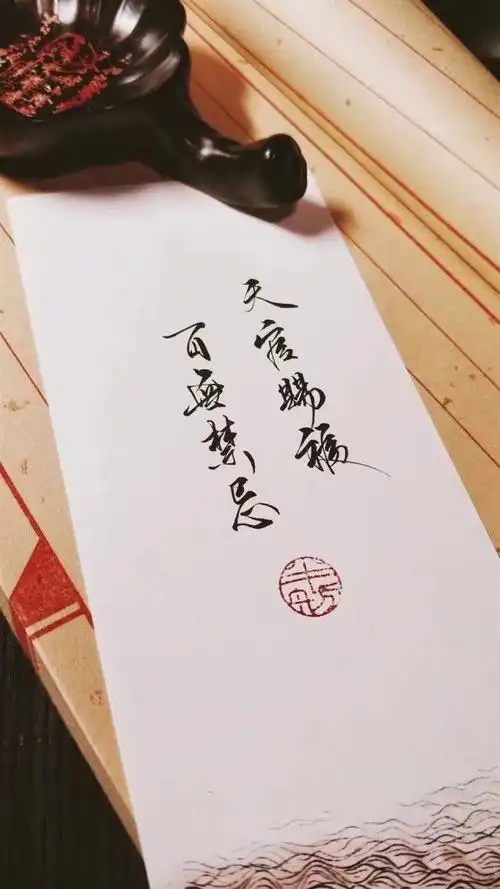 天官赐福
百無禁忌